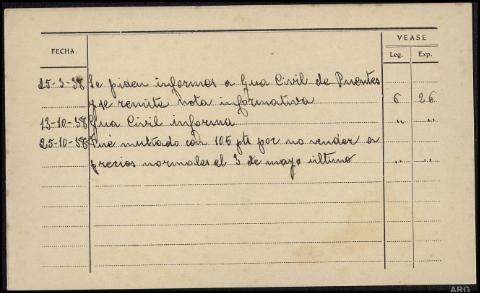 FECHA
VEASE
Leg. Exp.
25-3-38 Se piden informes a Gua Civil de Puentes
y se remite nota informativa 6 26
13-10-38 Gua Civil informa " "
25-10-38 Fué multado con 105 pts por no vender a
precios normales el 3 de mayo último " "
ARG